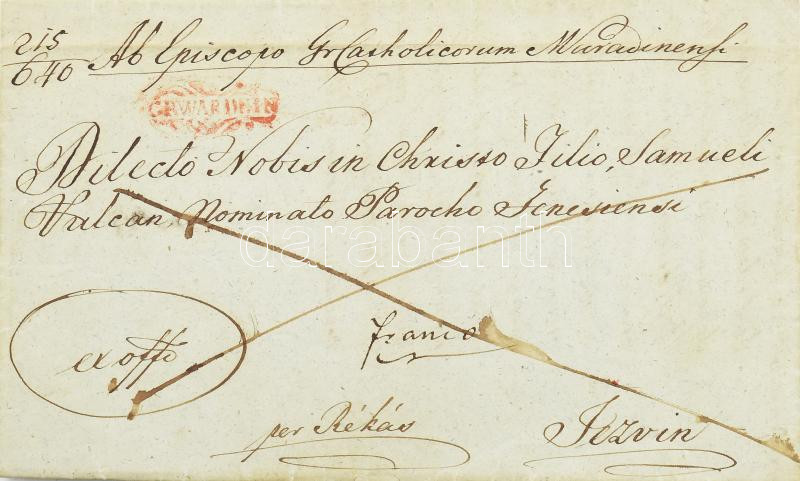 215
640
Ab Episcopo Gr Catholicorum M. Varadinensi
GRWARDEIN
Dilecto Nobis in Christo Filio, Samueli
Vulcan, Nominato Parocho Jenesiensi
darabanth
ex offo
franco
per Rékás
Jezvin